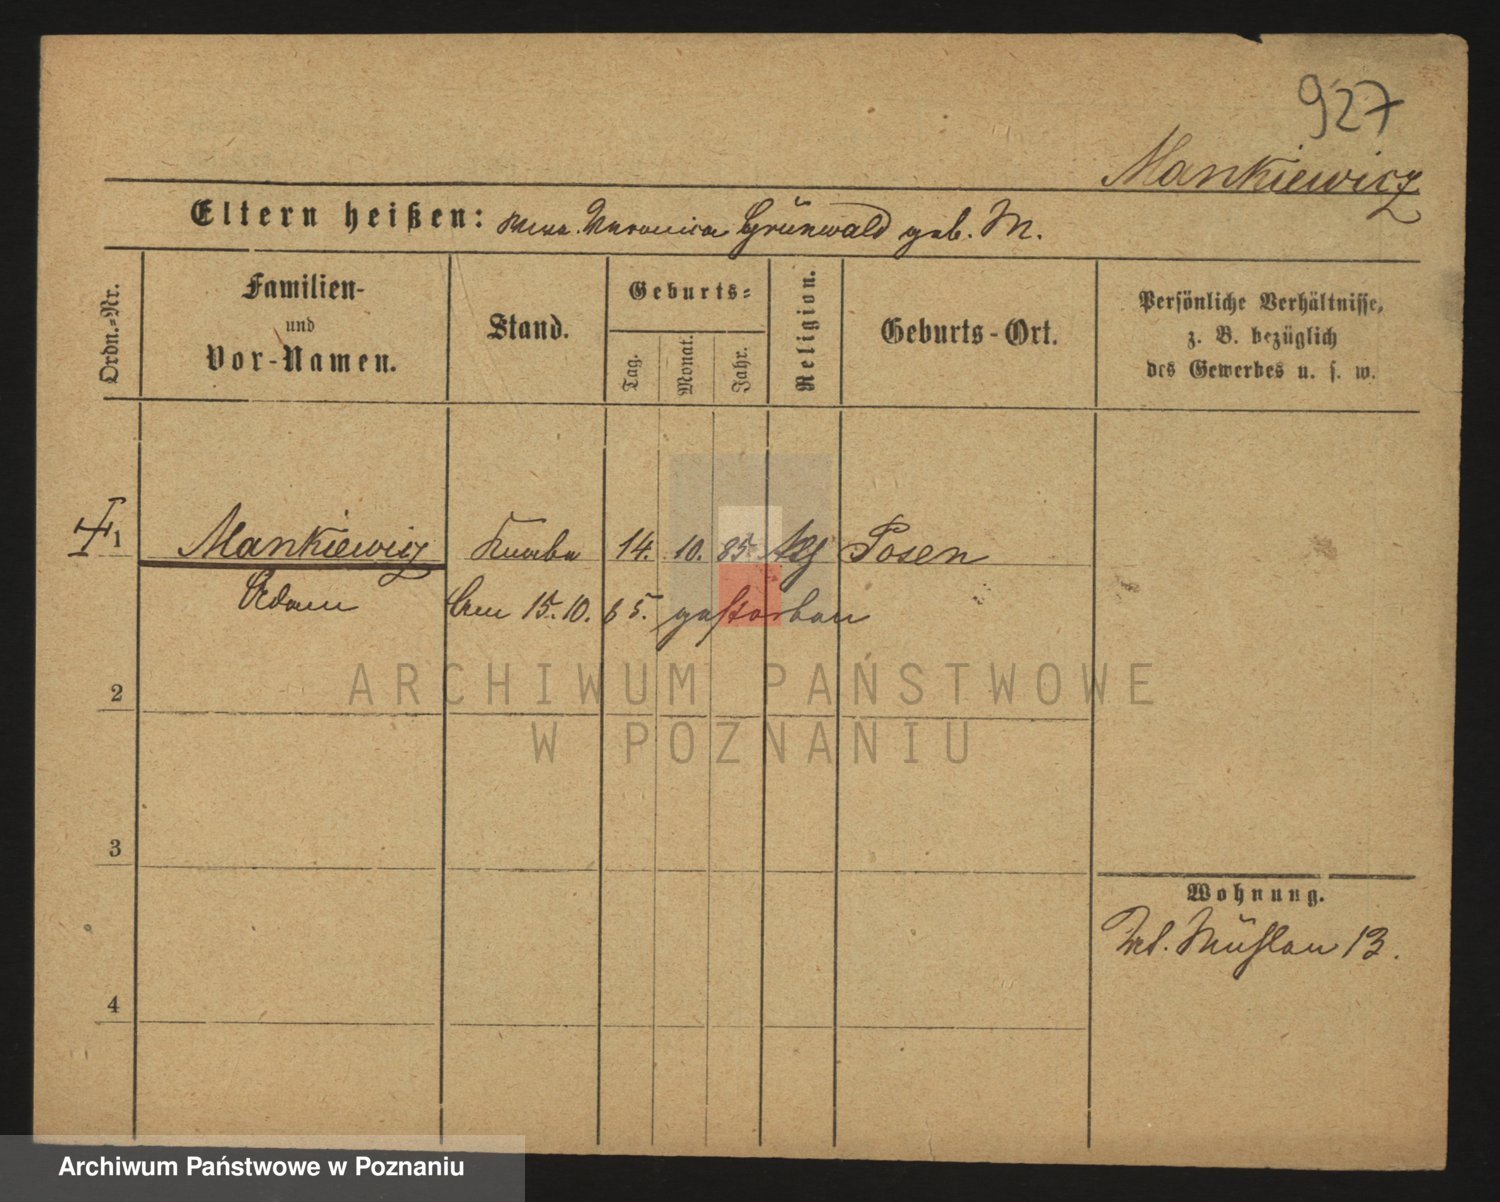 927
Mankiewicz
Eltern heißen: Veronica Grünwald geb. M.
Ordn.-Nr.
Familien-
und
Vor-Namen.
Stand.
Geburts-
Tag.
Monat.
Jahr.
Religion.
Geburts-Ort.
Persönliche Verhältnisse,
z. B. bezüglich
des Gewerbes u. s. w.
1 Mankiewicz Knabe 14. 10. 85. Posen
Adam Am 15. 10. 85. gestorben
2
3
4
Wohnung.
Mühlen 13.
ARCHIWUM PAŃSTWOWE
W POZNANIU
Archiwum Państwowe w Poznaniu